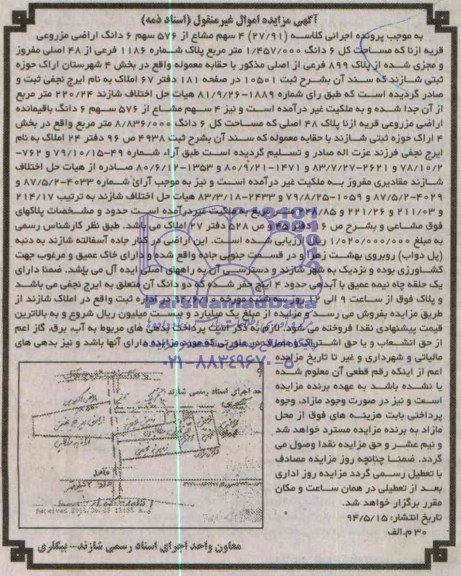 آگهی مزایده اموال غیرمنقول (اسناد ذمه)
به موجب پرونده اجرائی کلاسه (۲۷/۹۱) ۴ سهم مشاع از ۵۷۶ سهم ۶ دانگ اراضی مزروعی
قریه ازنا که مساحت کل ۶ دانگ ۱/۴۵۷/۰۰۰ متر مربع پلاک شماره ۱۱۸۶ فرعی از ۴۸ اصلی مفروز
و مجزی شده از پلاک ۸۹۹ فرعی از اصلی مذکور با حقابه معموله واقع در بخش ۴ شهرستان اراک حوزه
ثبتی شازند که سند آن بشرح ثبت ۱۰۵۰۱ در صفحه ۱۸۱ دفتر ۶۷ املاک به نام ایرج نجفی ثبت و
صادر گردیده است که طبق رای شماره ۱۸۸۹-۸۱/۹/۲۶ هیات حل اختلاف شازند ۲۲۰/۲۴ متر مربع
از آن جدا شده و به ملکیت غیر درآمده است و نیز ۴ سهم مشاع از ۵۷۶ سهم ۶ دانگ باقیمانده
اراضی مزروعی قریه ازنا پلاک ۴۸ اصلی که مساحت کل ۶ دانگ ۸/۸۳۶/۰۰۰ متر مربع واقع در بخش
۴ اراک حوزه ثبتی شازند با حقابه معموله که سند آن بشرح ثبت ۴۹۳۸ ص ۹۶ دفتر ۲۴ املاک به نام
ایرج نجفی فرزند عزت اله صادر و تسلیم گردیده است طبق آراء شماره ۴۹-۷۹/۱۰/۱۵ و ۷۶۲-
۷۸/۱۰/۲ و ۲۶۲۱-۸۳/۷/۲۷ و ۱۴۷۱-۸۰/۹/۲۱ و ۱۳۵۳-۸۰/۶/۱۲ صادره از هیات حل اختلاف
شازند مقادیری مفروز به ملکیت غیر درآمده است و نیز به موجب آرائ شماره ۴۰۳۳-۸۷/۵/۲ و
۴۰۲۹-۸۷/۵/۲ و ۱۰۵۹-۷۹/۸/۲۵ و ۲۴۳۳-۸۳/۳/۱۸ هیات حل اختلاف شازند به ترتیب ۲۱۴/۱۷
و ۲۱۱/۰۳ و ۲۲۱/۲۶ و مربع به ملکیت غیر درآمده است حدود و مشخصات پلاکهای
فوق مشاعی و بشرح ص ۶ دفتر ۴۵ و ص ۵۲۸ دفتر ۲۷ املاک می باشد. طبق نظر کارشناس رسمی
به مبلغ ۱/۰۲۰/۰۰۰/۰۰۰ ریال ارزیابی شده است. این اراضی در کنار جاده آسفالته شازند به دنبه
(پل دواب) روبروی بهشت زهرا و در قسمت جنوبی جاده واقع شده دارای خاک عمیق و مرغوب جهت
کشاورزی بوده و نزدیک به شهر شازند و دسترسی آن به راههای اصلی ایده آل می باشد. ضمنا دارای
یک حلقه چاه نیمه عمیق با آبدهی حدود ۴ اینچ حفر شده که دو دانگ آن متعلق به ایرج نجفی می باشد
و پلاک فوق از ساعت ۹ الی ۱۲ روز سه شنبه مورخه در اداره ثبت واقع در املاک شازند از
طریق مزایده بفروش می رسد و مزایده از مبلغ یک میلیارد و بیست میلیون ریال شروع و به بالاترین
قیمت پیشنهادی نقدا فروخته می شود. لازم به ذکر است پرداخت بدهی های مربوط به آب، برق، گاز اعم
از حق انشعاب و یا حق اشتراک و مصرف در صورتی که مورد مزایده دارای آنها باشد و نیز بدهی های
مالیاتی و شهرداری و غیر تا تاریخ مزایده
اعم از اینکه رقم قطعی آن معلوم شده
یا نشده باشد به عهده برنده مزایده
است و نیز در صورت وجود مازاد، وجوه
پرداختی بابت هزینه های فوق از محل
مازاد به برنده مزایده مسترد خواهد شد
و نیم عشر و حق مزایده نقدا وصول می
گردد. ضمنا چنانچه روز مزایده مصادف
با تعطیل رسمی گردد مزایده روز اداری
بعد از تعطیلی در همان ساعت و مکان
مقرر برگزار خواهد شد.
تاریخ انتشار: ۹۴/۵/۱۵
۳۰ م.الف
معاون واحد اجرای اسناد رسمی شازند- بیگلری
ParsNamadData
۰۲۱-۸۸۳۴۹۶۷۰-۵